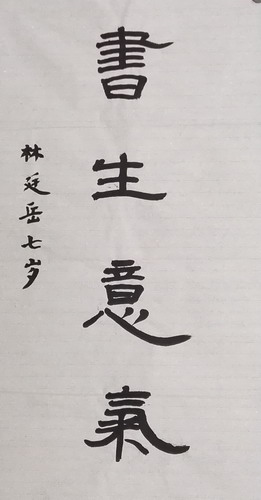 書生意氣
林廷岳七岁